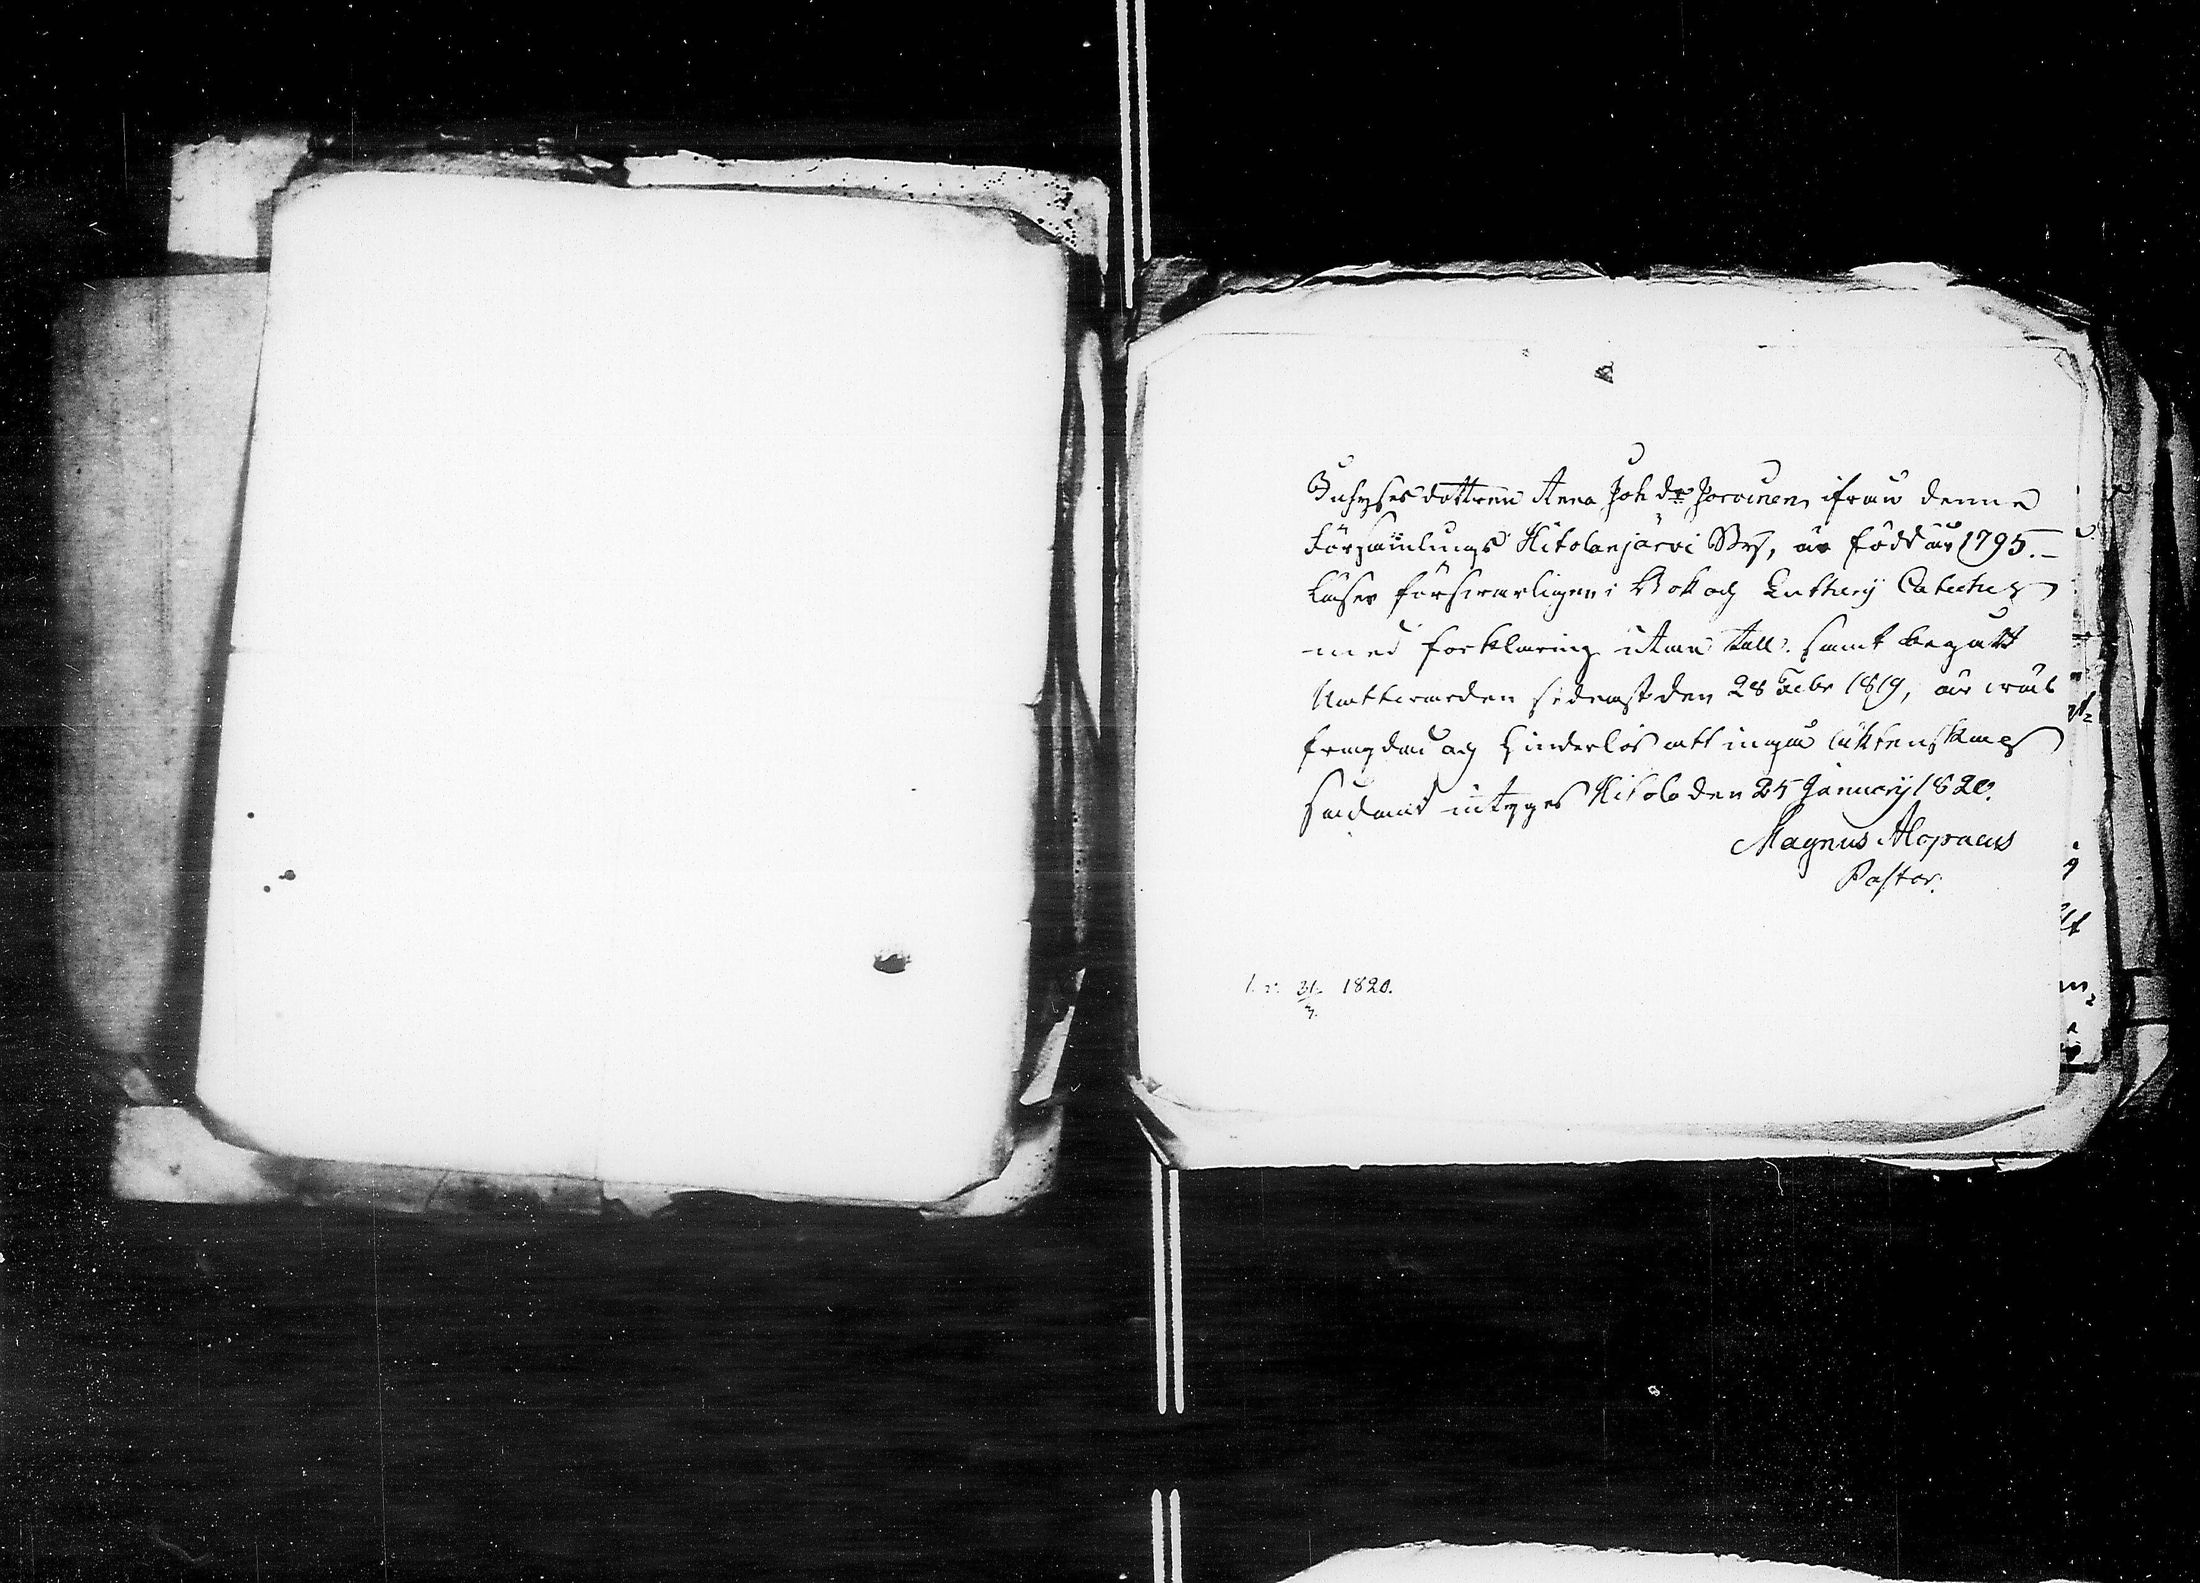 Inhyses dottren Anna Joh. dr Jorvinen, ifrån denne
Församlings Hitolanjärvi By, är född år 1795. –
Läser försvarligen i Bok och Lutherij Cateches
med förklaring utan till. samt begått
Nattvarden sidenst den 28 Febr 1819, är väl
frägdad och hinderlös att ingå äktenskap
sådant intygas Hitola den 25 Januarij 1820.
Magnus Alopaeus
Pastor.
31/3. 1820.